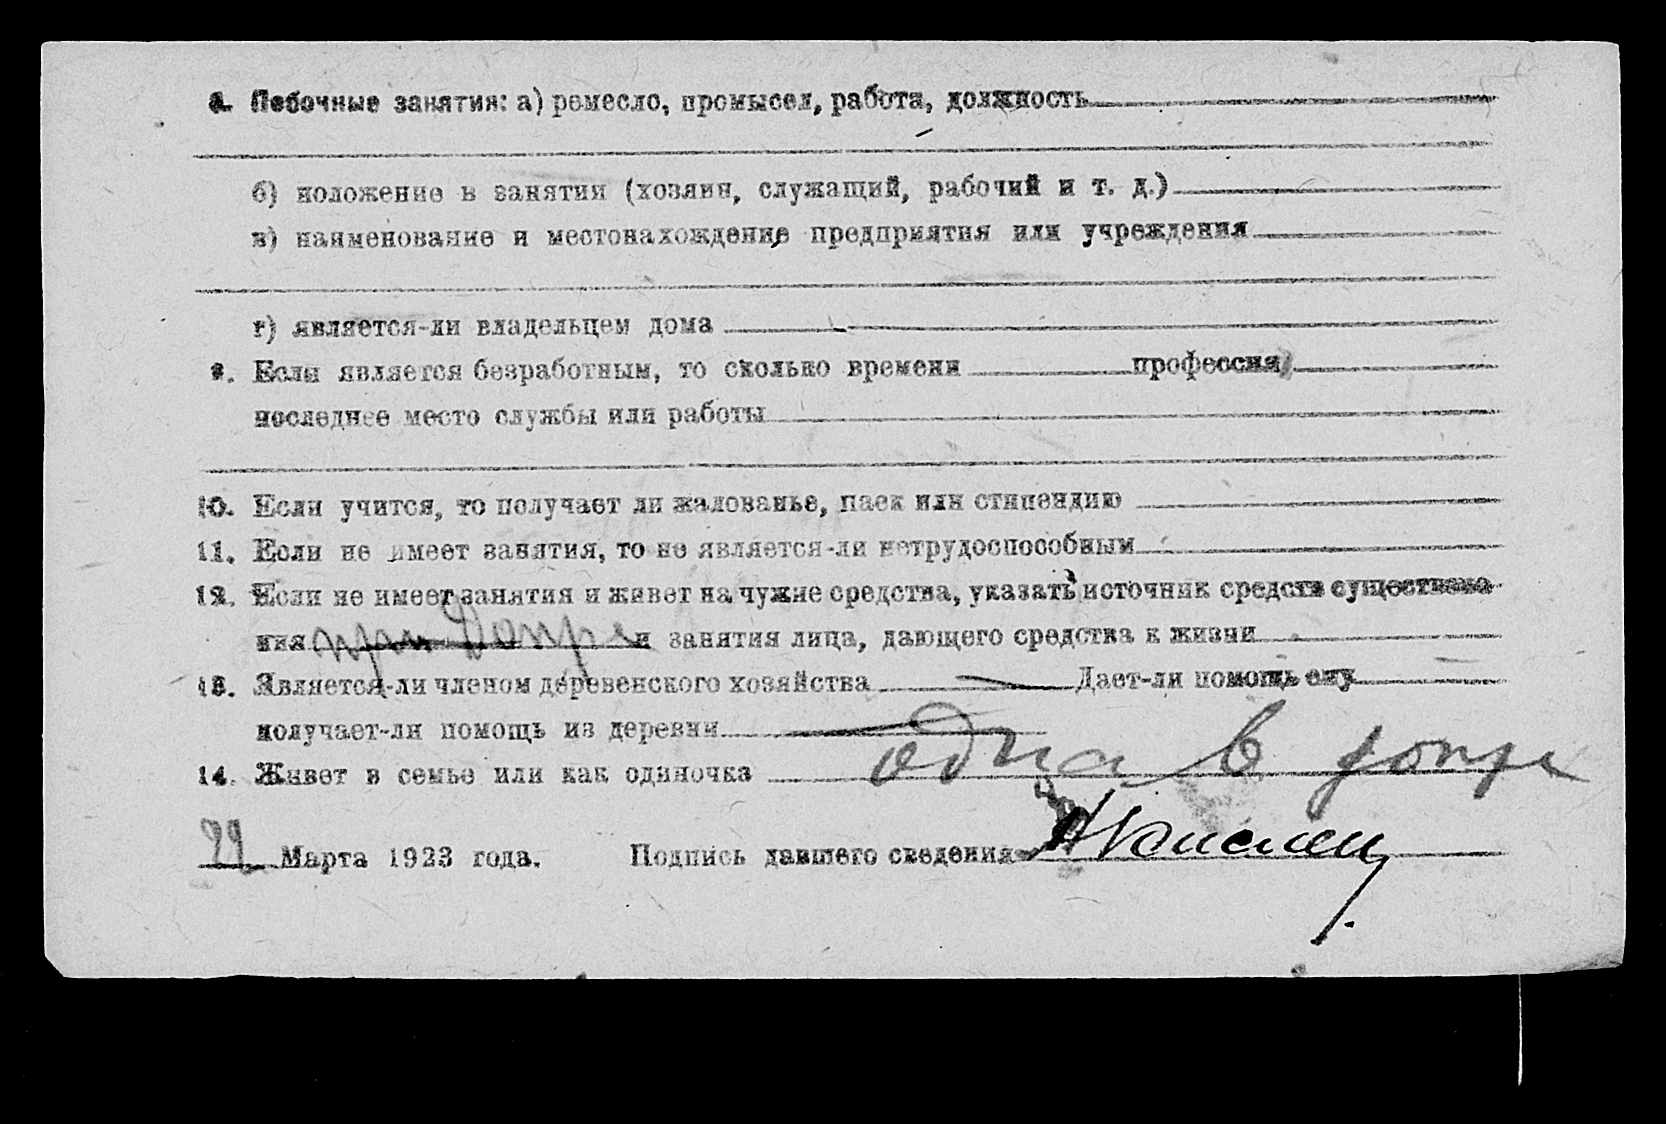 8. Побочные занятия: а) ремесло, промысел, работа, должность
б) положение в занятии (хозяин, служащий, рабочий и т. д.)
в) наименование и местонахождение предприятия или учреждения
г) является-ли владельцем дома
9. Если является безработным, то сколько времени профессия
последнее место службы или работы
10. Если учится, то получает ли жалованье, паек или стипендию
11. Если не имеет занятия, то не является-ли нетрудоспособным
12. Если не имеет занятия и живет на чужие средства, указать источник средств существова
ния при Допре и занятия лица, дающего средства к жизни
13. Является-ли членом деревенского хозяйства Дает-ли помощь ему
получает-ли помощь из деревни
14. Живет в семье или как одиночка одна в допре
22 Марта 1923 года. Подпись давшего сведения